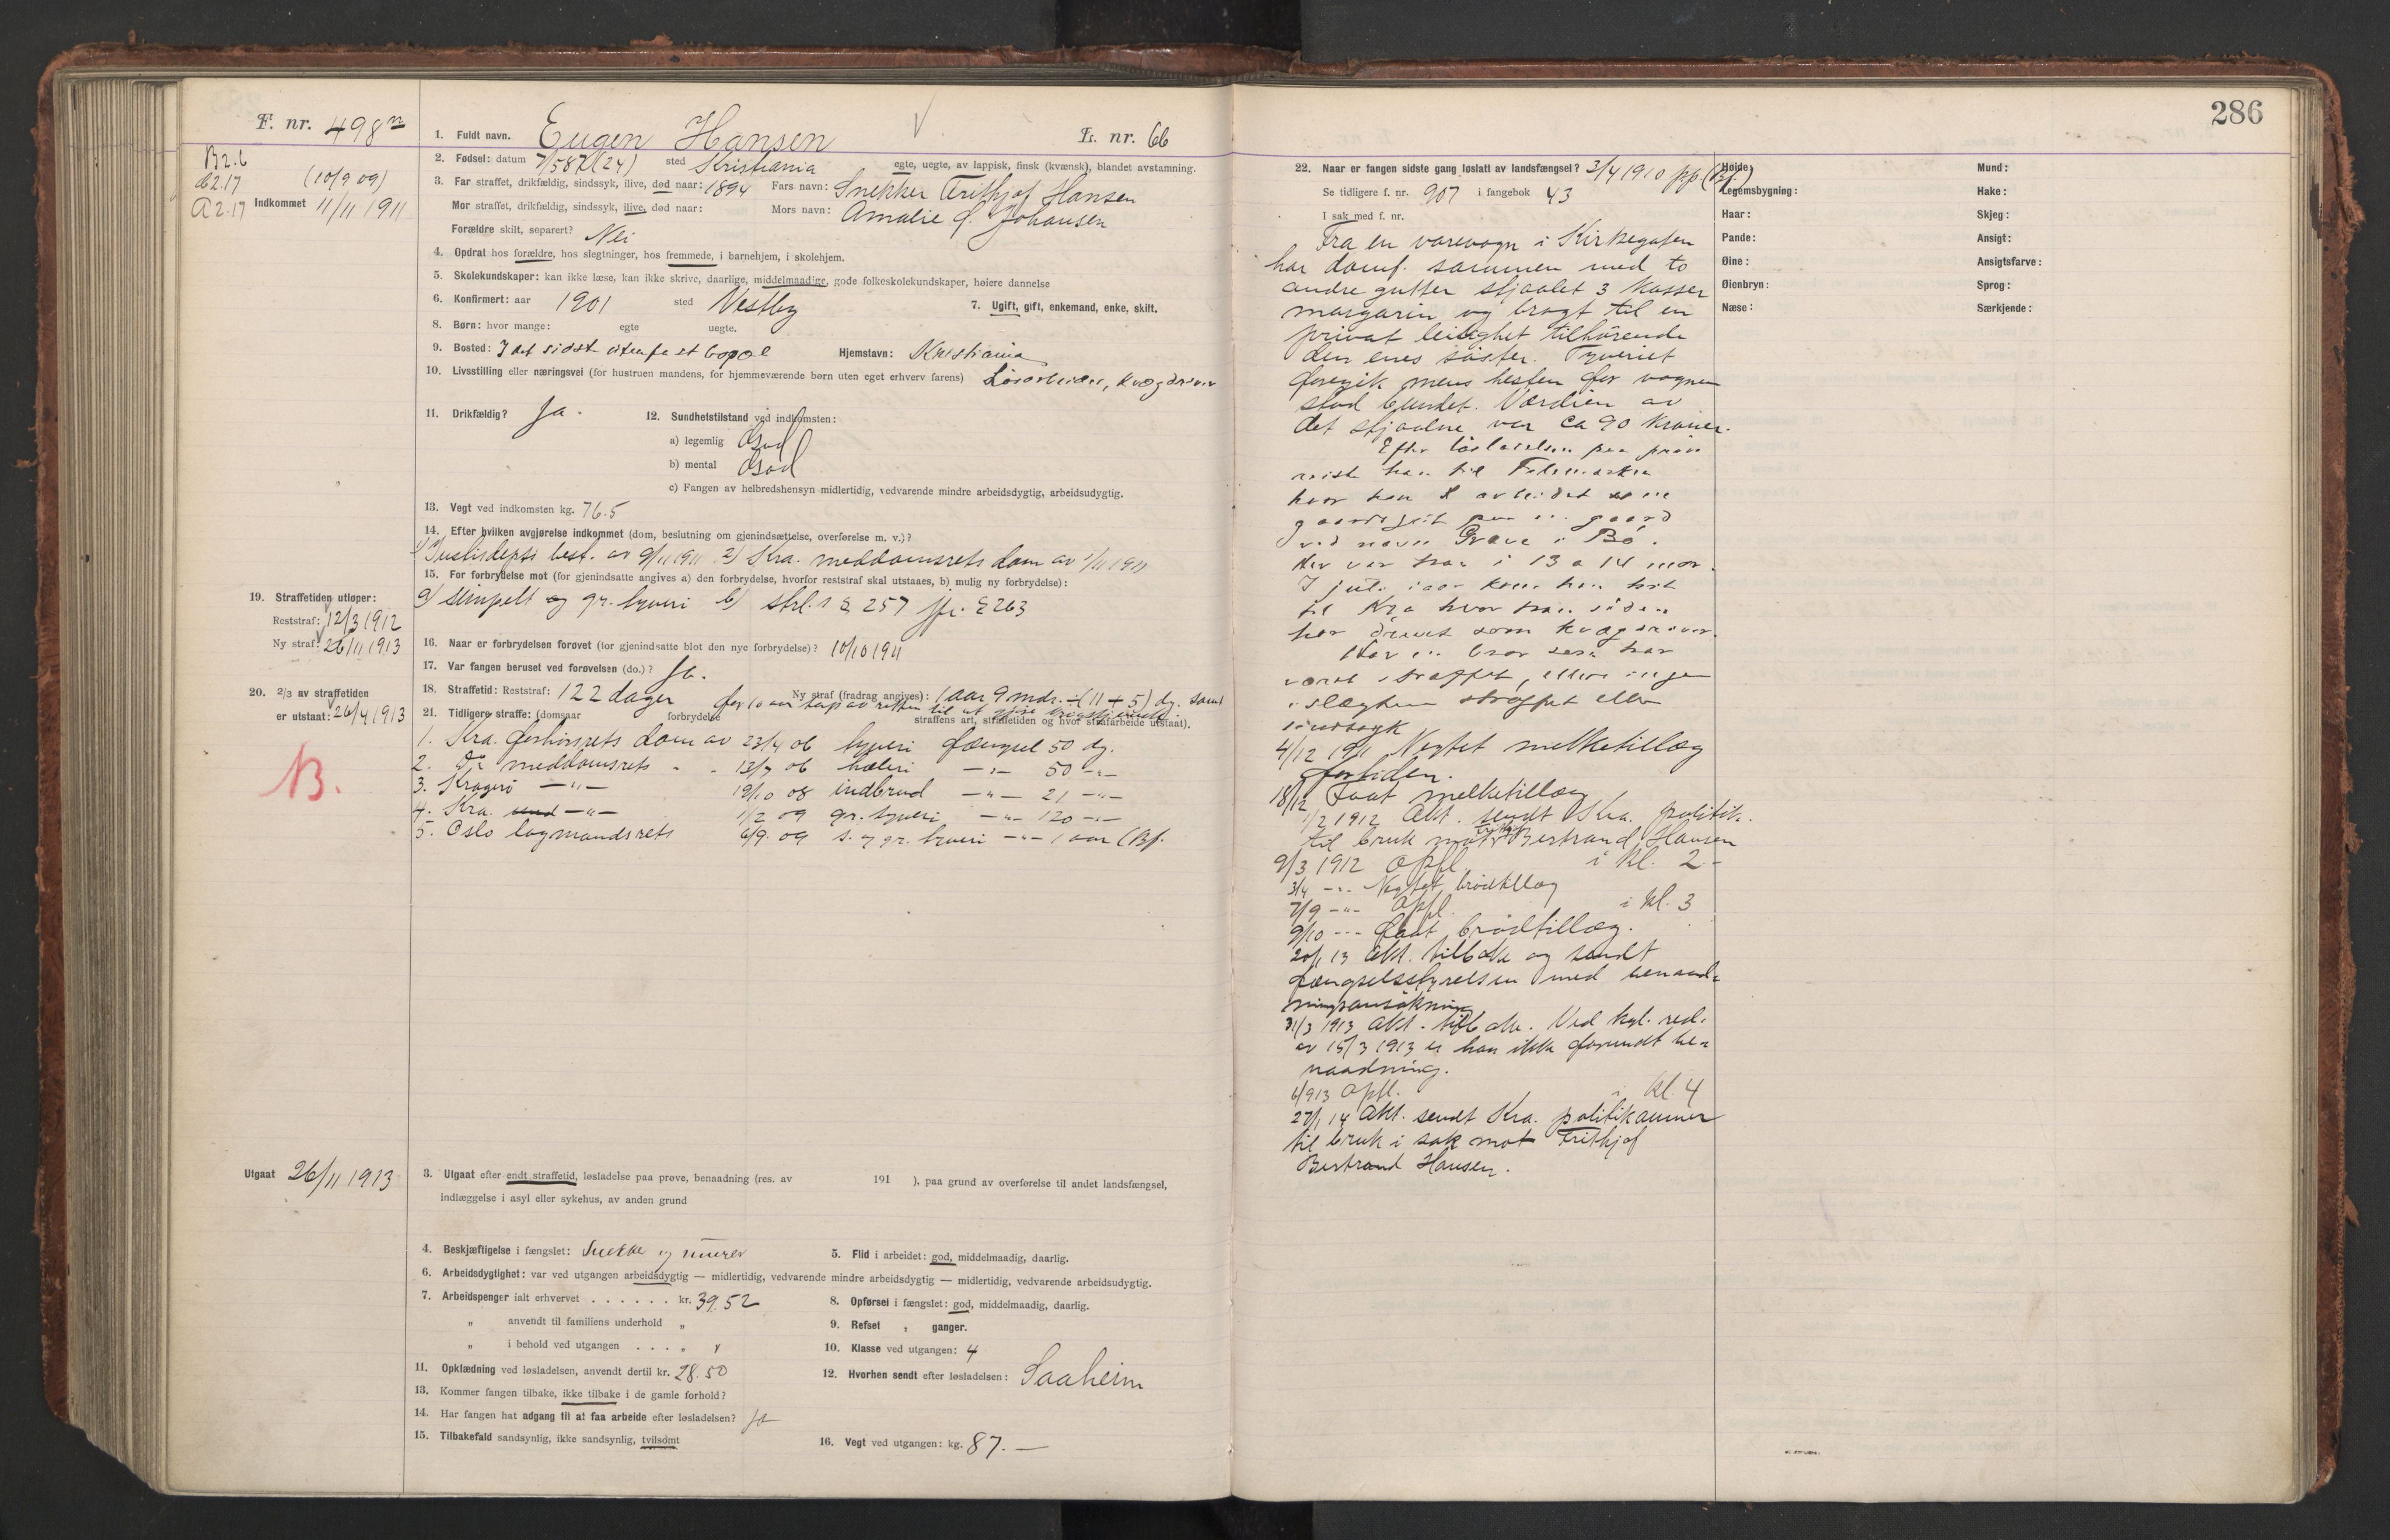 F. nr. 498n
B2.6
A2.17
Indkommet 11/11 1911 (10/9 09)
1. Fuldt navn. Eugen Hansen
L. nr. 66
2. Fødsel: datum 7/5 87 (24) sted Kristiania egte, uegte, av lappisk, finsk (kvænsk), blandet avstamning.
3. Far straffet, drikfældig, sindssyk, ilive, død naar: 1894 Fars navn: Snekker Frithjof Hansen
Mor straffet, drikfældig, sindssyk, ilive, død naar: Mors navn: Amalie f. Johansen
Forældre skilt, separert? Nei
4. Opdrat hos forældre, hos slegtninger, hos fremmede, i barnehjem, i skolehjem.
5. Skolekundskaper: kan ikke læse, kan ikke skrive, daarlige, middelmaadige, gode folkeskolekundskaper, høiere dannelse
6. Konfirmert: aar 1901 sted Vestby 7. Ugift, gift, enkemand, enke, skilt.
8. Børn: hvor mange: egte uegte.
9. Bosted: I det sidste uten fast bopæl Hjemstavn: Kristiania
10. Livsstilling eller næringsvei (for hustruen mandens, for hjemmeværende børn uten eget erhverv farens) Løsarbeider, kvægdriver
11. Drikfældig? Ja. 12. Sundhetstilstand ved indkomsten:
a) legemlig God
b) mental God
c) Fangen av helbredshensyn midlertidig, vedvarende mindre arbeidsdygtig, arbeidsudygtig.
13. Vegt ved indkomsten kg. 76.5
14. Efter hvilken avgjørelse indkommet (dom, beslutning om gjenindsættelse, overførelse m. v.)?
1) Justisdepts best. av 9/11 1911 2) Kra. meddomsrets dom av 1/11 1911
15. For forbrydelse mot (for gjenindsatte angives a) den forbrydelse, hvorfor reststraf skal utstaaes, b) mulig ny forbrydelse):
a) simpelt og gr. tyveri b) strl.s § 257 jfr. § 263
19. Straffetiden utløper:
Reststraf: 12/3 1912
Ny straf: 26/11 1913
16. Naar er forbrydelsen forøvet (for gjenindsatte blot den nye forbrydelse)? 10/10 1911
17. Var fangen beruset ved forøvelsen (do.)? Ja.
20. 2/3 av straffetiden
er utstaat: 26/4 1913
18. Straffetid: Reststraf: 122 dager Ny straf (fradrag angives): 1 aar 9 mdr. ÷ (11 + 5) dg. samt
for 10 aar tap av retten til at gjøre krigstjeneste.
21. Tidligere straffe: (domsaar forbrydelse straffens art, straffetiden og hvor strafarbeide utstaat).
1. Kra. forhørsrets dom av 23/4 06 tyveri fængsel 50 dg.
2. Do meddomsrets - - 13/7 06 hæleri —"— 50 —"—
3. Kragerø —"— 19/10 08 indbrud —"— 21 —"—
4. Kra. —"— 1/2 09 gr. tyveri —"— 120 —"—
5. Oslo lagmandsrets 6/9. 09 s. og gr. tyveri —"— 1 aar (Bf.
B.
Utgaat 26/11 1913
3. Utgaat efter endt straffetid, løsladelse paa prøve, benaadning (res. av 191 ), paa grund av overførelse til andet landsfængsel,
indlæggelse i asyl eller sykehus, av anden grund
4. Beskjæftigelse i fængslet: Snekker og murer 5. Flid i arbeidet: god, middelmaadig, daarlig.
6. Arbeidsdygtighet: var ved utgangen arbeidsdygtig — midlertidig, vedvarende mindre arbeidsdygtig — midlertidig, vedvarende arbeidsudygtig.
7. Arbeidspenger ialt erhvervet . . . . . . kr. 39.52 8. Opførsel i fængslet: god, middelmaadig, daarlig.
" anvendt til familiens underhold " 9. Refset " ganger.
" i behold ved utgangen . . . " " 10. Klasse ved utgangen: 4
11. Opklædning ved løsladelsen, anvendt dertil kr. 28.50 12. Hvorhen sendt efter løsladelsen: Saaheim
13. Kommer fangen tilbake, ikke tilbake i de gamle forhold?
14. Har fangen hat adgang til at faa arbeide efter løsladelsen? Ja
15. Tilbakefald sandsynlig, ikke sandsynlig, tvilsomt 16. Vegt ved utgangen: kg. 87.—
286
22. Naar er fangen sidste gang løslatt av landsfængsel? 3/4 1910 pp (Bf.)
Se tidligere f. nr. 907 i fangebok 43
I sak med f. nr.
Fra en varevogn i Kirkegaten
har domf. sammen med to
andre gutter stjaalet 3 kasser
margarin og bragt til en
privat leilighet tilhørende
den enes søster. Tyveriet
foregik mens hesten for vognen
stod bundet. Værdien av
det stjaalne var ca 90 kroner.
Efter løslatelsen paa prøve
reiste han til Telemarken
hvor han arbeidet som
gaardsgut paa en gaard
ved navn Grave i Bø.
Her var han i 13 a 14 mdr.
I juli iaar kom han hit
til Kra hvor han siden
har drevet som kvægdriver.
Har en bror som har
været straffet, ellers ingen
i slægten straffet eller
sindssyk
4/12 1911 Negtet melketillæg
fortiden.
18/12 Faat melketillæg
1/2 1912 Akt. sendt Kra. politik.
til bruk mot Frithjof Bertrand Hansen
9/3 1912 Opfl. i kl. 2.-
3/4 —"— Negtet brødtillæg
7/9 —"— Opfl. i kl. 3
9/10 —"— Faat brødtillæg.
20/1 13 Akt. tilbake og sendt
fængselsstyrelsen med benaad-
ningsansøkning
31/3 1913 Akt. tilbake. Ved kgl. res.
av 15/3 1913 er han ikke forundt be-
naadning.
6/9 13 Opfl. i kl. 4
27/1 14 Akt. sendt Kra. politikammer
til bruk i sak mot Frithjof
Bertrand Hansen.
Høide: Mund:
Legemsbygning: Hake:
Haar: Skjeg:
Pande: Ansigt:
Øine: Ansigtsfarve:
Øienbryn: Sprog:
Næse: Særkjende: